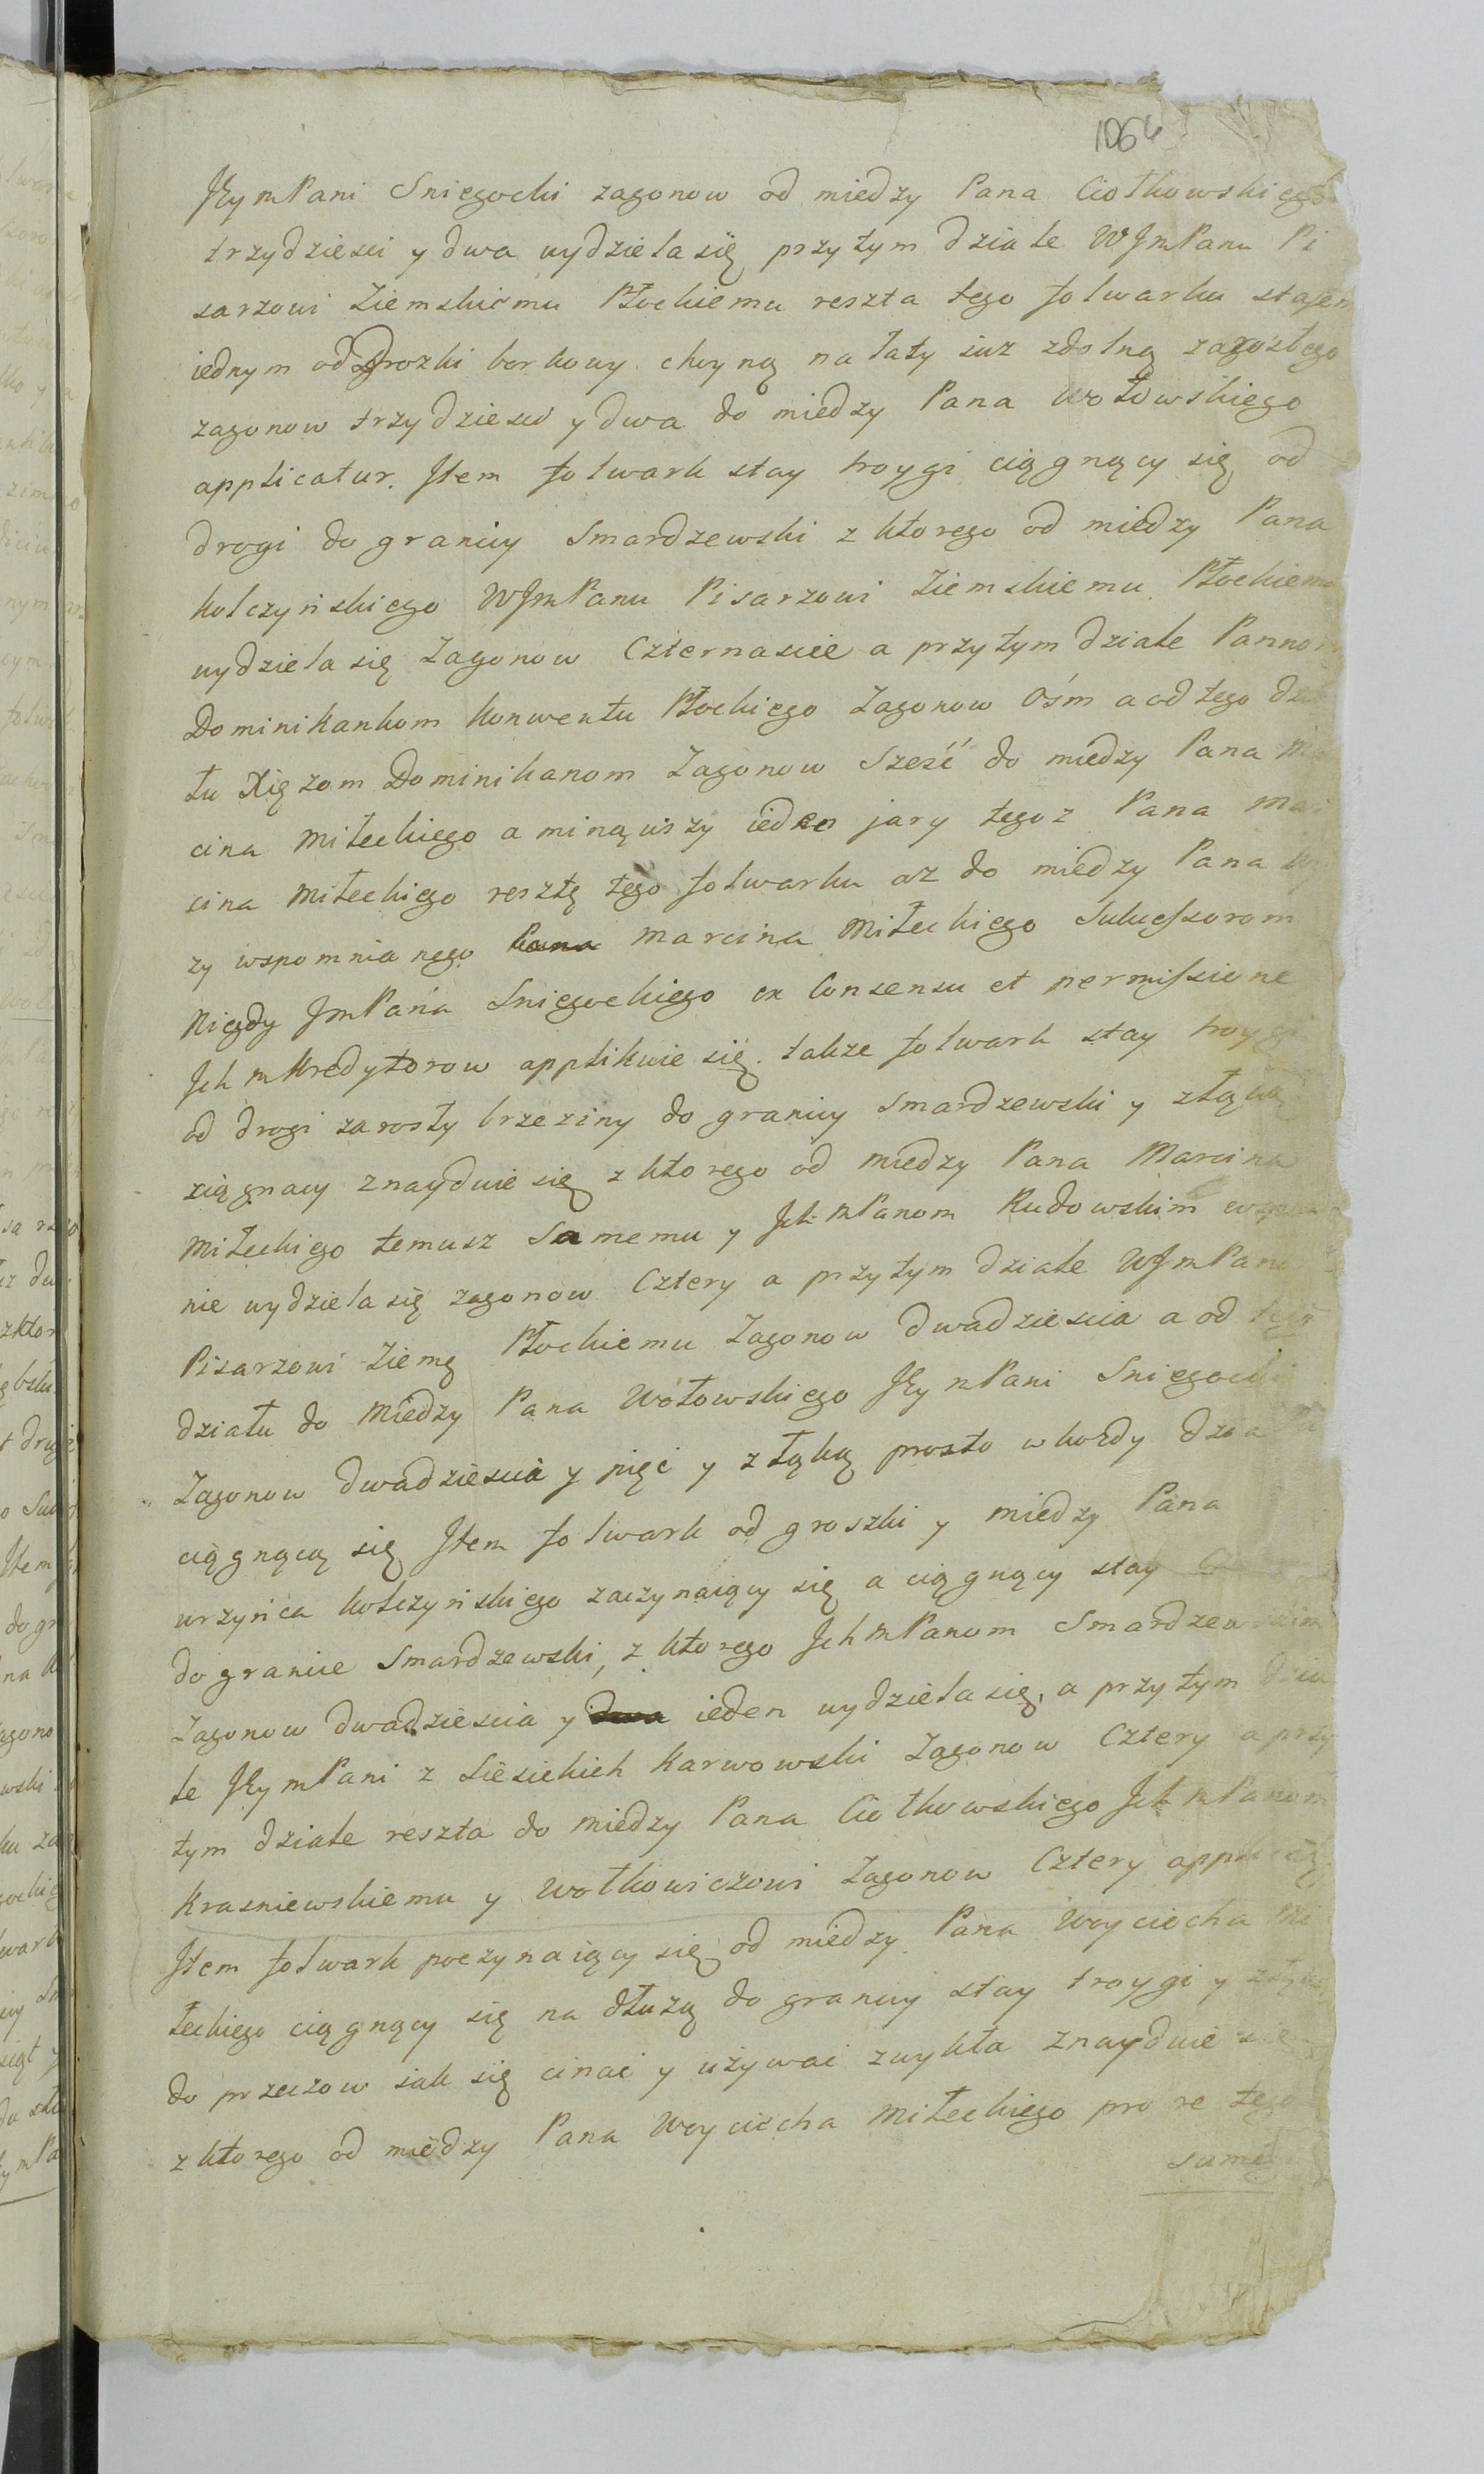 1066
JEymPani Sniegocki zagonow od miedzy Pana Ciołkowskiego
trzydziesci y dwa wydziela się przytym dziale WJmPanu Pi
sarzowi Ziemskiemu Płockiemu reszta tego folwarku stajem
iednym od drozki borkowy choyną na łaty iuz zdolną zarosłego
zagonow trzydziesci y dwa do miedzy Pana Wołowskiego
applicatur. Item folwark stay troygi ciągnący się od
drogi do granicy Smardzewski z ktorego od miedzy Pana
Kolczyńskiego WJmPanu Pisarzowi Ziemskiemu Płockiemu
wydziela się Zagonow Czternascie a przytym dziale Pannom
Dominikankom Konwentu Płockiego Zagonow Ośm a od tego dzia
łu Xięzom Dominikanom Zagonow Sześć do miedzy Pana Mar
cina Miłeckiego a minąwszy ieden jary tegoz Pana Mar
cina Miłeckiego resztę tego folwarku az do miedzy Pana Wy
zy wspomnianego Marcina Miłeckiego Sukcessorom
Niegdy JmPana Sniegockiego ex Consensu et permissione
Ich m Kredytorow applikuie się. takze folwark stay troygi
od drogi zarosły brzeziny do granicy Smardzewski y z łąką
ciągnący znayduie się z ktorego od miedzy Pana Marcina
Miłeckiego temusz Samemu y Ich mPanom Rudowskim
nie wydziela się zagonow Cztery a przytym dziale WJmPanu
Pisarzowi Ziemę Płockiemu Zagonow dwadziescia a od tego
działu do Miedzy Pana Wołowskiego JEymPani Sniegocki
Zagonow dwadziescia y pięc y z łąką prosto w kozdy dział
ciągnącą się Item folwark od groszki y miedzy Pana
urzyńca Kolczyńskiego zaczynaiący się a ciągnący stay
do granice Smardzewski, z ktorego Ich mPanom Smardzewskim
Zagonow dwadziescia y ieden wydziela się, a przytym dzia
le JEymPani z Siesickich Karwowski Zagonow Cztery a przy
tym dziale reszta do miedzy Pana Ciołkowskiego Ich mPanom
Krasniewskiemu y Wołkowiczowi Zagonow Cztery
Item folwark poczynaiący się od miedzy Pana Woyciecha Mi
łeckiego ciągnący się na dłuzą do granicy stay troygi y z łąką
do przeczow iak się cinac y używac zwykła znayduie się
z ktorego od miedzy Pana Woyciecha Miłeckiego pro re tego
samego